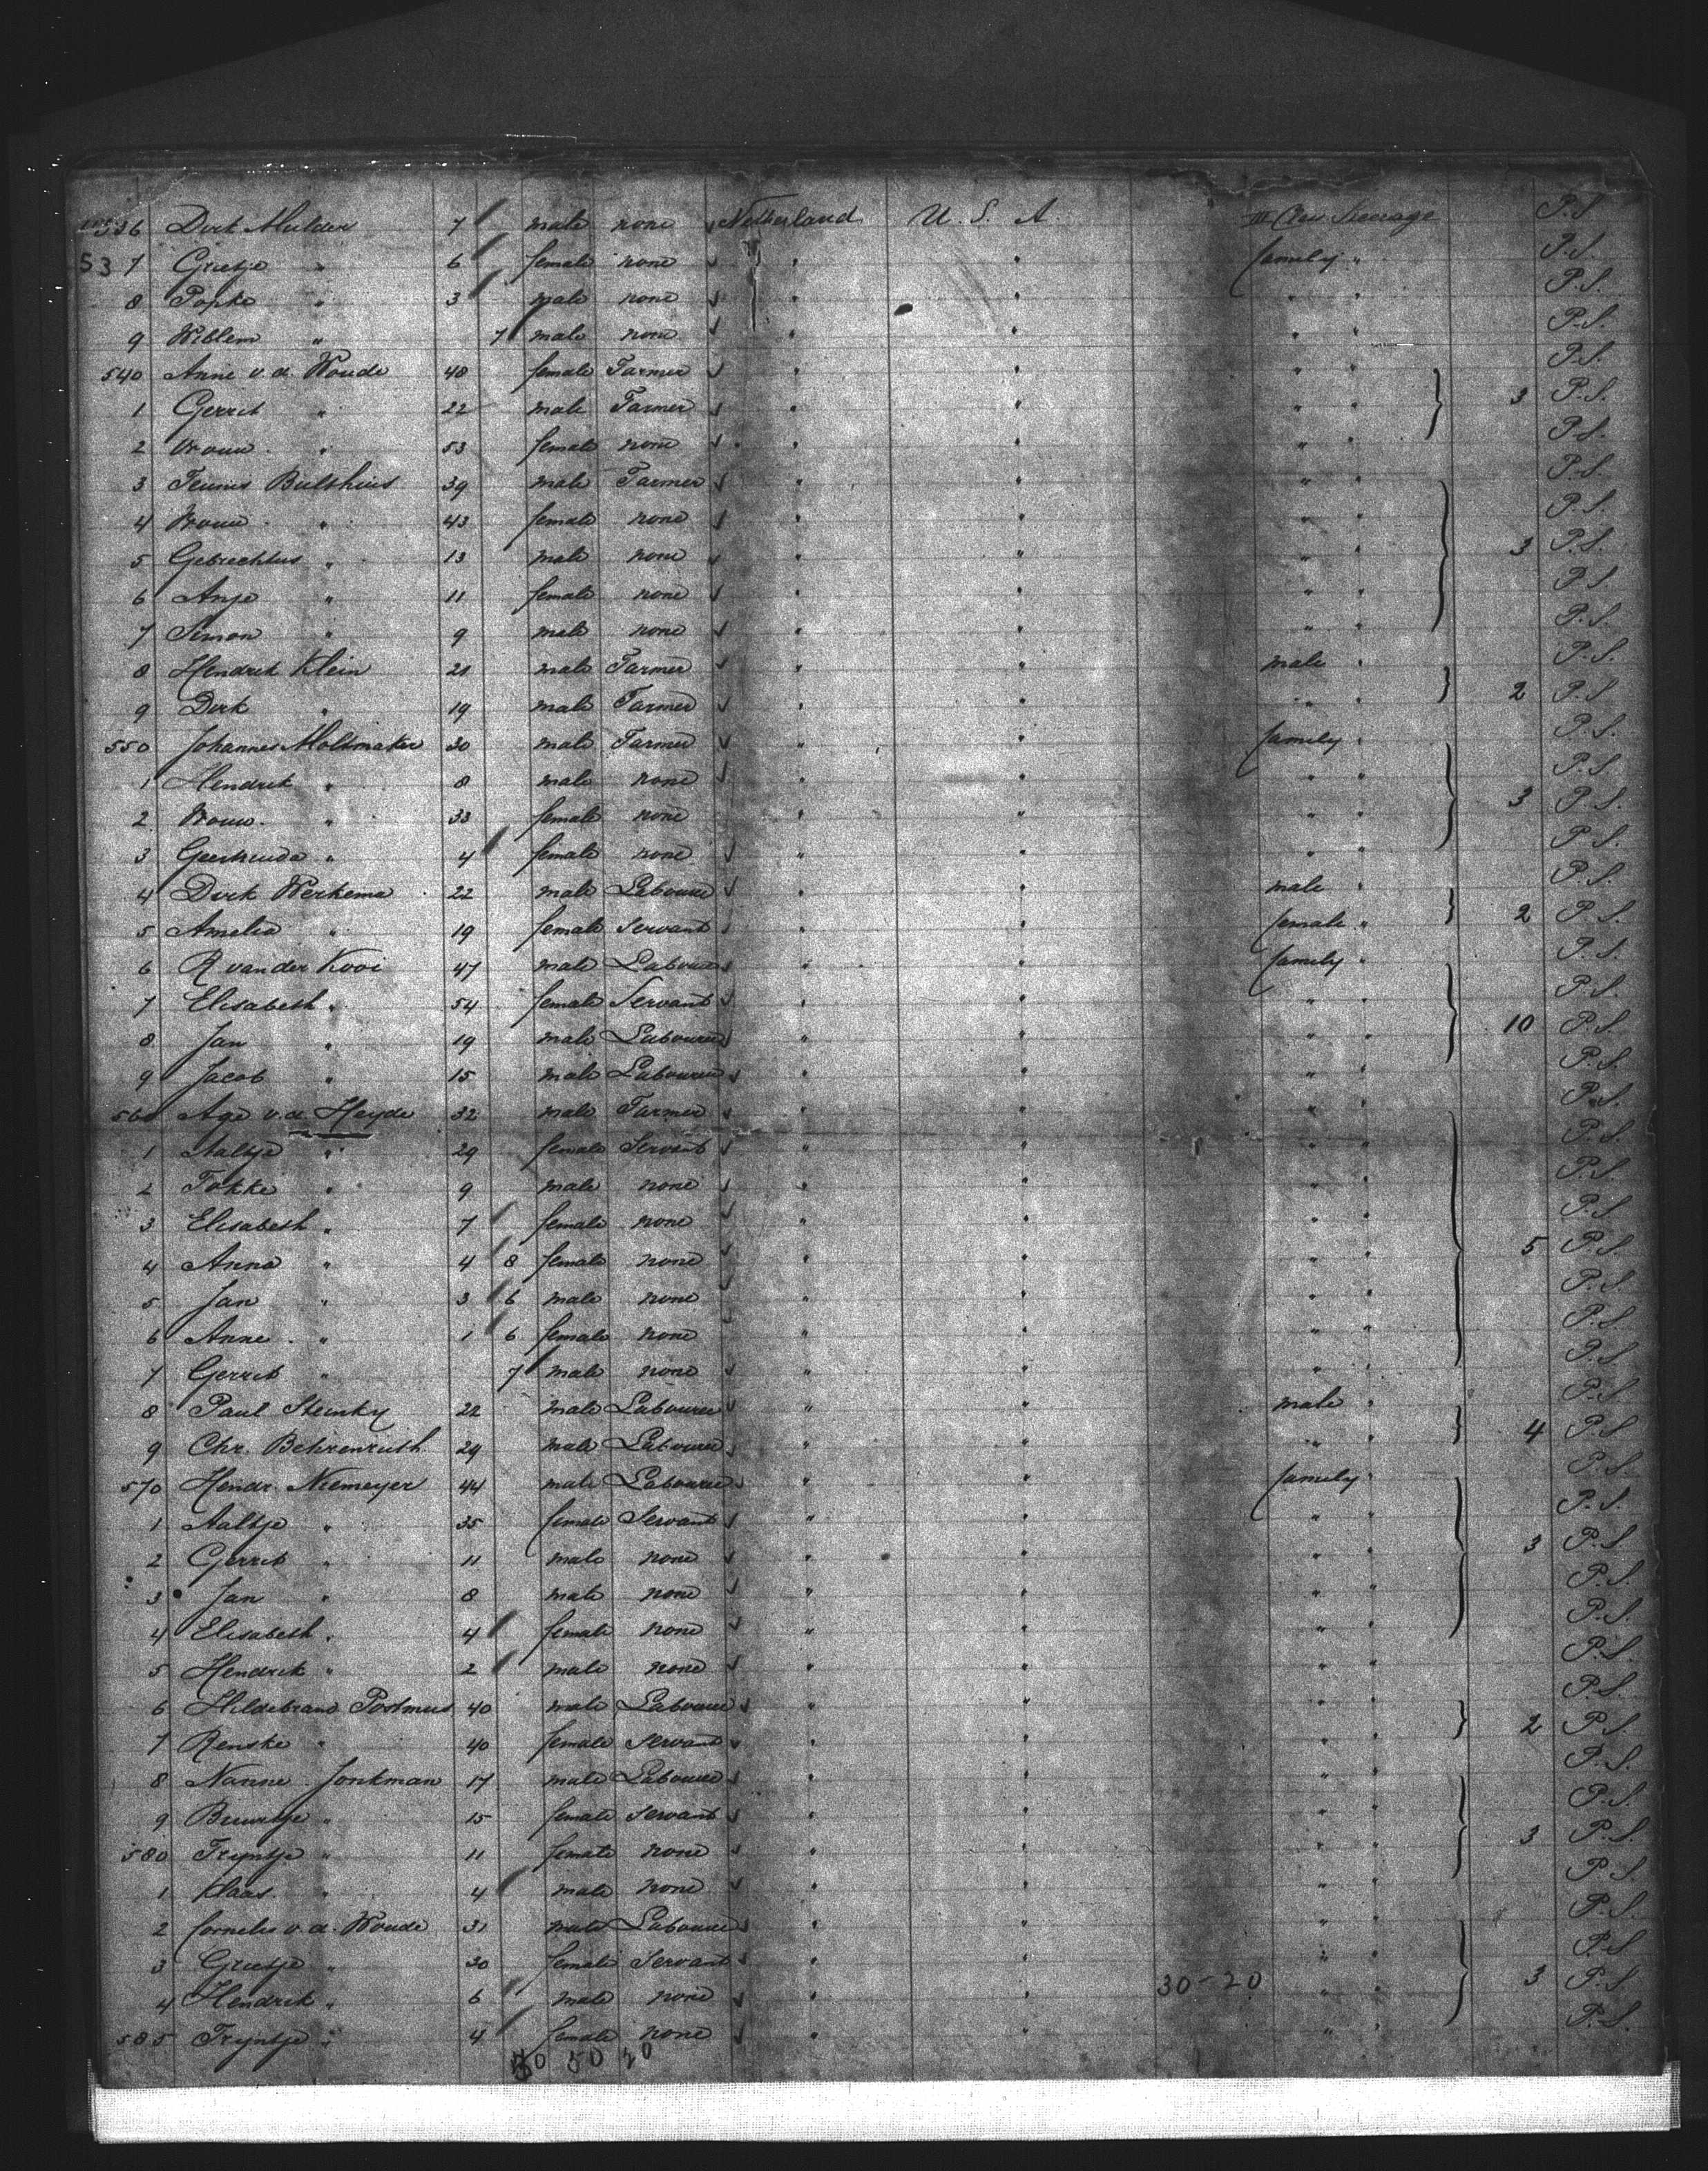 536 Dirk Mulder 7 male none Netherland U. S. A. III Class Steerage P.S.
537 Grietje " 6 female none " " family " P.S.
8 Popke " 3 male none " " " " P.S.
9 Willem " 7 male none " " " " P.S.
540 Anne v. d. Woude 48 female Farmer " " " P.S.
1 Gerrit " 22 male Farmer " " " " 3 P.S.
2 Vrouw " 53 female none " " " " P.S.
3 Teunis Bulthuis 39 male Farmer " " " " P.S.
4 Vrouw " 43 female none " " " " P.S.
5 Gebrechtus " 13 male none " " " " 3 P.S.
6 Anje " 11 female none " " " " P.S.
7 Simon " 9 male none " " " " P.S.
8 Hendrik Klein 21 male Farmer " " male " P.S.
9 Dirk " 19 male Farmer " " " " 2 P.S.
550 Johannes Moltmaker 30 male Farmer " " family " P.S.
1 Hendrik " 8 male none " " " " P.S.
2 Vrouw " 33 female none " " " " 3 P.S.
3 Geertruida " 4 female none " " " " P.S.
4 Dirk Werkema 22 male Labourer " " male " P.S.
5 Amelia " 19 female Servant " " female " 2 P.S.
6 R van der Kooi 47 male Labourer " " family " P.S.
7 Elisabeth " 54 female Servant " " " " P.S.
8 Jan " 19 male Labourer " " " " 10 P.S.
9 Jacob " 15 male Labourer " " " " P.S.
560 Age v. d. Heyde 32 male Farmer " " " " P.S.
1 Aaltje " 29 female Servant " " " " P.S.
2 Fokke " 9 male none " " " " P.S.
3 Elisabeth " 7 female none " " " " P.S.
4 Anna " 4 8 female none " " " " 5 P.S.
5 Jan " 3 6 male none " " " " P.S.
6 Anne " 1 6 female none " " " " P.S.
7 Gerrit " 7 male none " " " " P.S.
8 Paul Steinky 22 male Labourer " " male " P.S.
9 Chr. Behrenruth 29 male Labourer " " " " 4 P.S.
570 Hendr. Niemeyer 44 male Labourer " " family " P.S.
1 Aaltje " 35 female Servant " " " " P.S.
2 Gerrit " 11 male none " " " " 3 P.S.
3 Jan " 8 male none " " " " P.S.
4 Elisabeth " 4 female none " " " " P.S.
5 Hendrik " 2 male none " " " " P.S.
6 Hildebrand Postmus 40 male Labourer " " " " P.S.
7 Renske " 40 female Servant " " " " 2 P.S.
8 Nanne Jonkman 17 male Labourer " " " " P.S.
9 Buurtje " 15 female Servant " " " " P.S.
580 Tryntje " 11 female none " " " " 3 P.S.
1 Klaas " 4 male none " " " " P.S.
2 Cornelis v. d. Woude 31 male Labourer " " " " P.S.
3 Grietje " 30 female Servant " " " " P.S.
4 Hendrik " 6 male none " " 30-20 " " 3 P.S.
585 Tryntje " 4 female none " " " " P.S.
50 20